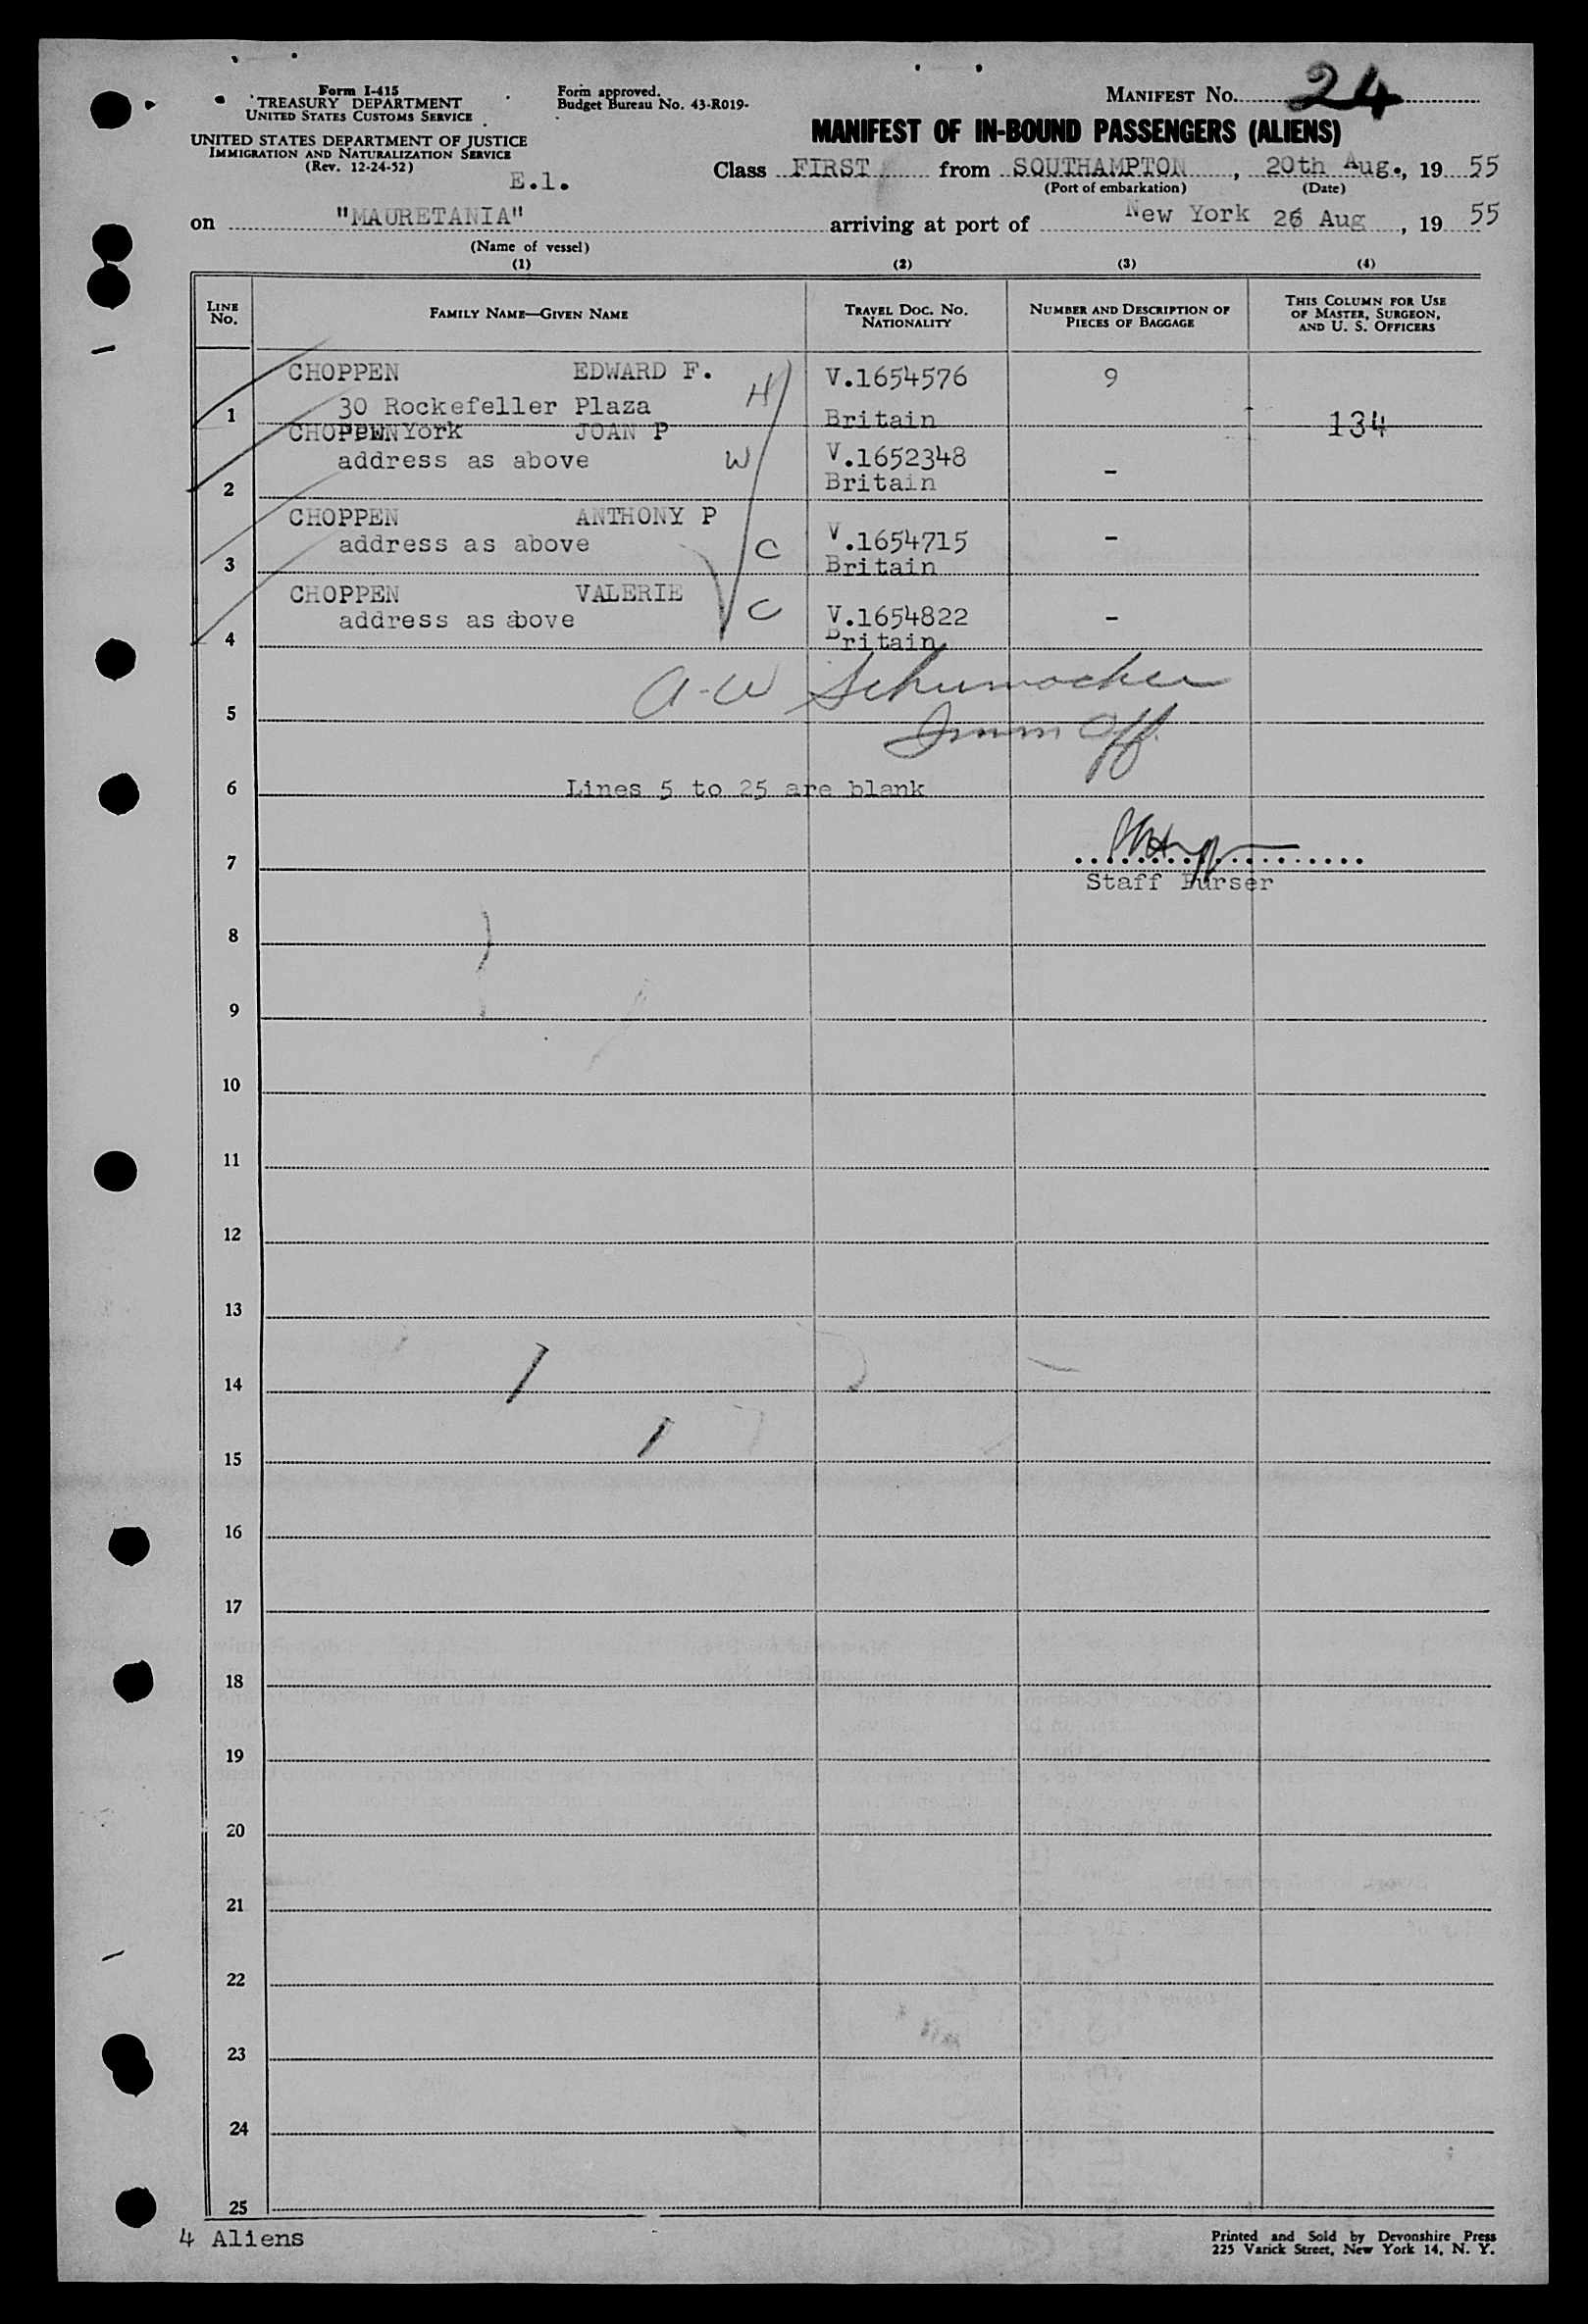 Form I-415
TREASURY DEPARTMENT
UNITED STATES CUSTOMS SERVICE
UNITED STATES DEPARTMENT OF JUSTICE
IMMIGRATION AND NATURALIZATION SERVICE
(Rev. 12-24-52)
E.1.
Form approved.
Budget Bureau No. 43-R019-
MANIFEST No. 24
MANIFEST OF IN-BOUND PASSENGERS (ALIENS)
Class FIRST from SOUTHAMPTON, 20th Aug., 19 55
(Port of embarkation) (Date)
on "MAURETANIA" arriving at port of New York 26 Aug, 19 55
(Name of vessel)
(1) (2) (3) (4)
LINE No. FAMILY NAME—GIVEN NAME TRAVEL DOC. NO. NATIONALITY NUMBER AND DESCRIPTION OF PIECES OF BAGGAGE THIS COLUMN FOR USE OF MASTER, SURGEON, AND U. S. OFFICERS
CHOPPEN EDWARD F. H V.1654576 9
1 30 Rockefeller Plaza Britain 134
New York
CHOPPEN JOAN P
address as above W V.1652348 -
2 Britain
CHOPPEN ANTHONY P
address as above C V.1654715 -
3 Britain
CHOPPEN VALERIE
address as above C V.1654822 -
4 Britain
A-W Schumacher
5 Imm Off.
6 Lines 5 to 25 are blank
7
Staff Purser
8
9
10
11
12
13
14
15
16
17
18
19
20
21
22
23
24
25
4 Aliens
Printed and Sold by Devonshire Press
225 Varick Street, New York 14, N. Y.